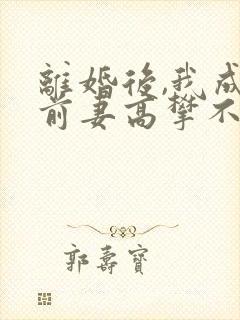 離婚後,我成
前妻高攀不
郭壽寶